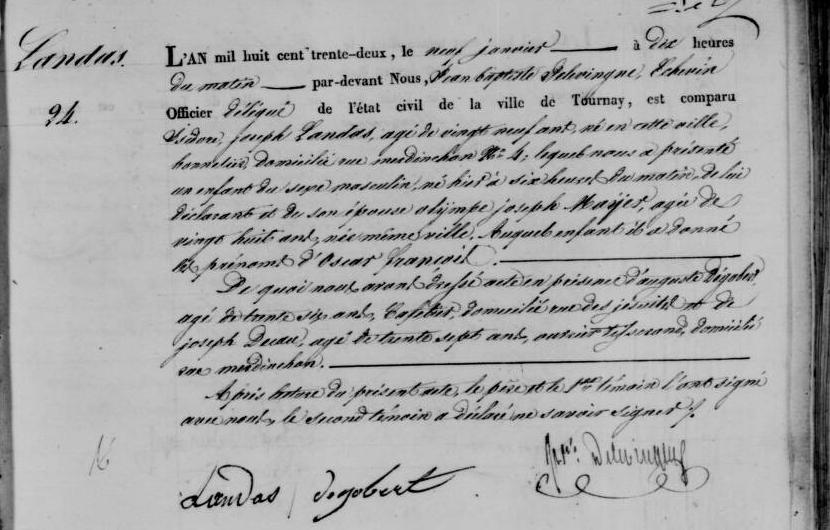 Landas.
24.
L'AN mil huit cent trente-deux, le neuf janvier à dix heures
du matin par-devant Nous, Jean baptiste Delvingne, Echevin
Officier délégué de l'état civil de la ville de Tournay, est comparu
Isidore, joseph Landas, agé de vingt neuf ans, né en cette ville,
bonnetier, domicilié rue merdinchon No. 4, lequel nous a présenté
un enfant du sexe masculin, né hier à six heures du matin, de lui
déclarant et de son épouse olympe joseph Mayer, agée de
vingt huit ans, née même ville, Auquel enfant il a donné
les prénoms d'Oscar françois.
De quoi nous avons dressé acte en présence d'auguste Dégobert,
agé de trente six ans, Cafetier, domicilié rue des jésuites et de
joseph agé de trente sept ans, ouvrier tisserand, domicilié
rue merdinchon.
Après lecture du présent acte, le père et le 1er témoin l'ont signé
avec nous, le second témoin a déclaré ne savoir signer /.
Landas degobert Delvingne